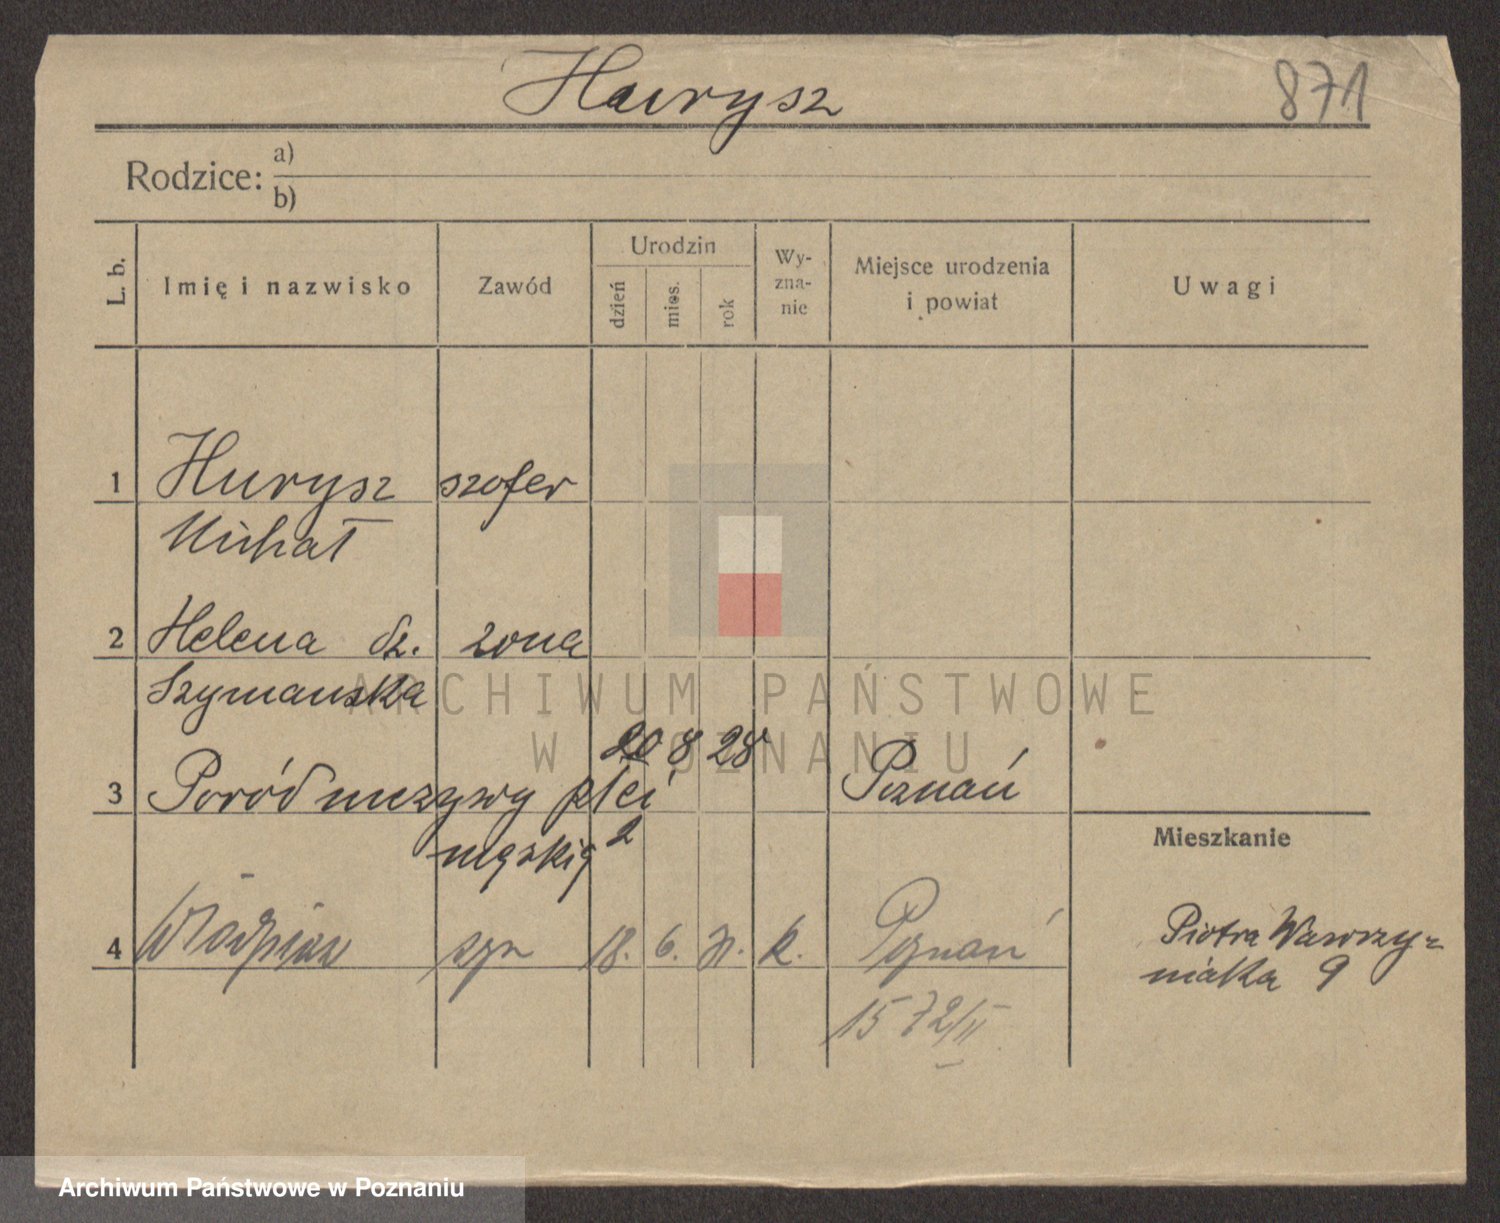 Hurysz 871
Rodzice: a)
b)
L. b. Imię i nazwisko Zawód Urodzin dzień mies. rok Wy-zna-nie Miejsce urodzenia i powiat Uwagi
1 Hurysz szofer
Michał
2 Helena dz. żona
Szymańska
20 8 28
3 Poród nieżywy płci Poznań
męskiej 2
Mieszkanie
4 syn 18. 6. 31. k. Poznań
1572/II
Piotra Wawrzy-
niaka 9
ARCHIWUM PAŃSTWOWE
W POZNANIU
Archiwum Państwowe w Poznaniu